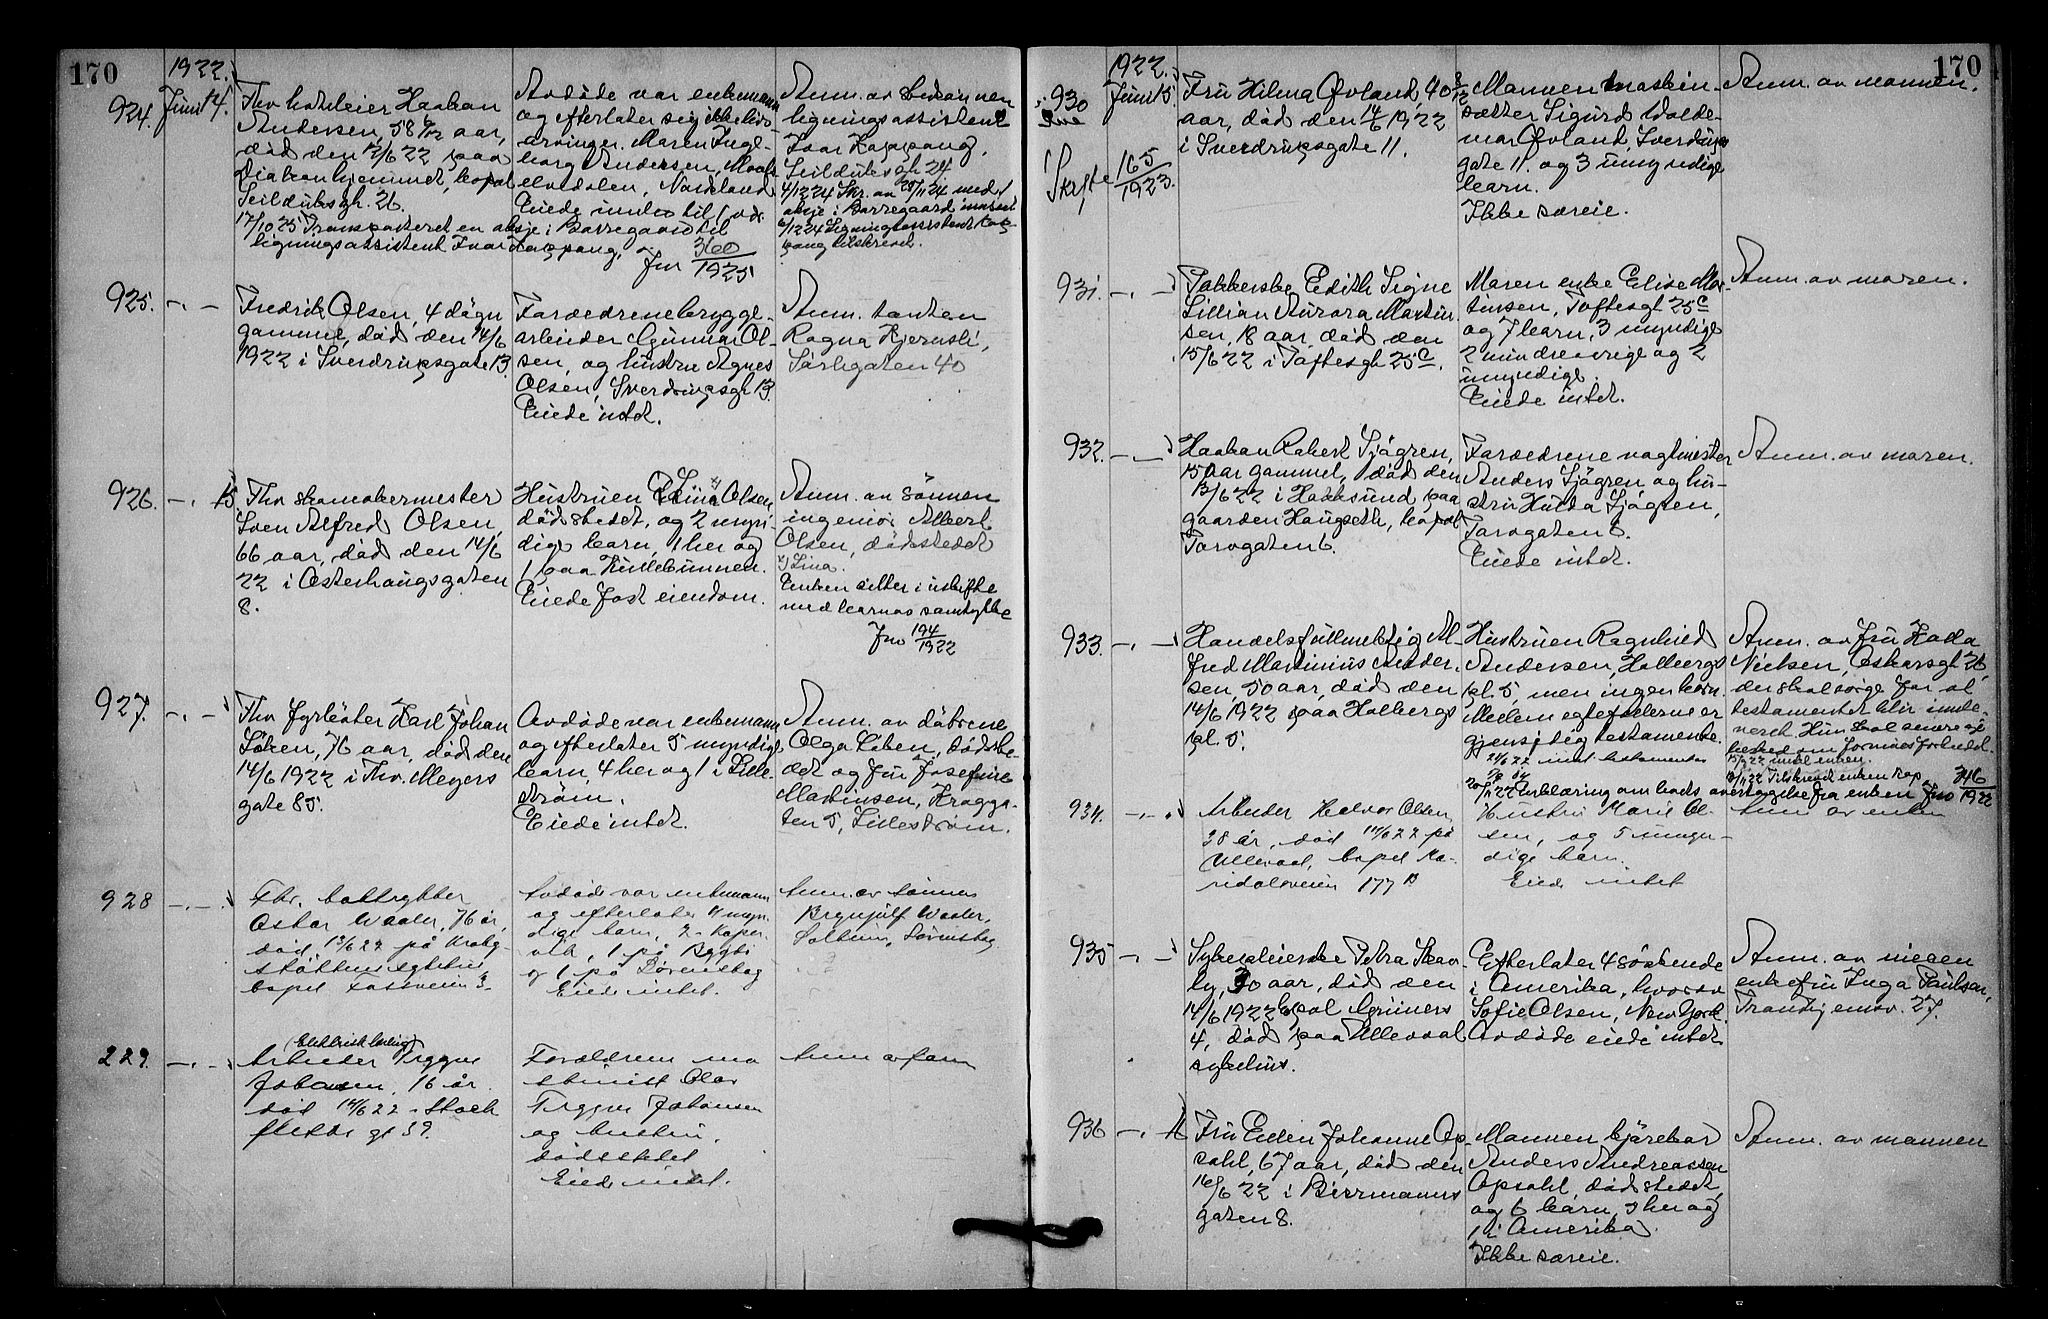 170
1922.
924.
Juni 14.
Fhv hotleier Haakon
Andersen, 58 6/12 aar,
død den 12/6 22 paa
Diakonhjemmet, bopæl
Seilduksgt. 26.
Avdøde var enkemann
og efterlater sig ikke livs-
arvinger. Maren Inge-
borg Andersen,
Nordland
Eiede indtil
Anm. av
ligningsassistent
Ivar Kappang,
Seilduksgt 24.
4/12 24 Skr. av 25/11 24 med 1
aksje i Borregaard innsent
6/12 24 Ligningsassistent Kap-
pang tilskrevet.
17/10 25 Transporteret en aksje i Borregaard til
ligningsassistent Ivar Kappang.
Jnr 360/1925
925.
Fredrik Olsen, 4 døgn
gammel, død den 14/6
1922 i Sverdrupsgate 13.
Forældrene brygge-
arbeider Gunnar Ol-
sen, og hustru Agnes
Olsen, Sverdrupsgt 13.
Eiede intet.
Anm. tanten
Ragna Hjernsli,
Sarsgaten 40
926.
15.
Fhv skomakermester
Sven Alfred Olsen,
66 aar, død den 14/6
22 i Østerhausgaten
8.
Hustruen Lina Olsen,
dødsstedet, og 2 myn-
dige barn, 1 her og
1 paa Kullebunnen.
Eiede fast eiendom.
Anm. av sønnen
ingeniør Albert
Olsen, dødsstedet
Lina.
Enken sitter i uskifte
med barnas samtykke
Jnr 194/1922
927.
Fhv fyrbøter Karl Johan
Liben, 76 aar, død den
14/6 1922 i Thv. Meyers
gate 85.
Avdøde var enkemann
og efterlater 5 myndige
barn, 4 her og 1 i Lille-
strøm.
Eiede intet.
Anm. av døtrene
Olga Liben, dødsste-
det og fru Josefine
Martinsen, Kragga-
ten 5, Lillestrøm.
928
Fhv. boktrykker
Oskar Waaler, 76 år,
død 12/6 22 på Krohg-
støttens sykehus
bopel
Avdøde var enkemann
og efterlater 4 myn-
dige barn, 2 i Koper-
vik, 1 på Bygdø
og 1 på Lørenskog
Eiede intet.
Anm. av sønnen
Brynjulf Waaler,
Solheim, Lørenskog
929.
(Elektrisk lærling)
Arbeider Trygve
Johansen, 16 år
død 14/6 22 i Stock-
fleths gt 39.
Foreldrene ma-
skinist Olav
Trygve Johansen
og hustru,
dødsstedet
Eiede intet.
Anm av faren
170
1922.
930
Juni 15.
Skifte 165/1923.
Fru Hilma Øvland, 40 8/12
aar, død den 14/6 1922
i Sverdrupsgate 11.
Mannen maskin-
sætter Sigurd Walde-
mar Øvland, Sverdrups
gate 11. og 3 umyndige
barn.
Ikke særeie.
Anm. av mannen.
931.
Pakkerske Edith Signe
Lillian Aurora Martin-
sen, 18 aar, død den
15/6 22 i Toftesgt 25c.
Moren enke Elise Mar-
tinsen, Toftesgt 25c
og 7 barn, 3 myndige
2 mindreaarige og 2
umyndige.
Eiede intet.
Anm. av moren.
932.
Haakon Robert Sjøgren,
15 aar gammel, død den
13/6 22 i Hokksund paa
gaarden Haugseth, bopæl
Torvgaten 6.
Forældrene vagtmester
Anders Sjøgren og hu-
stru Hulda Sjøgren,
Torvgaten 6.
Eiede intet.
Anm. av moren.
933.
Handelsfuldmektig Al-
fred Martinius Ander-
sen, 50 aar, død den
14/6 1922 paa Holbergs
pl. 5.
Hustruen Ragnhild
Andersen, Holbergs
pl. 5, men ingen barn.
Mellem egtefællerne er
gjensidig testamente.
Anm. av fru Hilda
Nielsen, Oskarsgt 26,
der skal sørge for at
testamentet blir inde-
nert. Hun skal senere gi
besked om formuesforhold.
erklæring om bo ets overtagelse fra enken Jnr 346/1922
934.
Arbeider Halvor Olsen,
38 år, død 14/6 22 på
Ullevaal, bopel Ma-
ridalsveien 177 B
Hustru Marie Ol-
sen, og 5 umyn-
dige barn.
Eiede intet
Anm av enken
935
Sykepleierske Petra Skav-
ly, 30 aar, død den
14/6 1922 bopæl Grüners
4, død paa Ullevaal
sykehus.
Efterlater 4 søskende
i Amerika, hvorav
Sofie Olsen, New York
Avdøde eiede intet.
Anm. av niecen
enkefru Inga Paulsen,
Trondhjemsv. 27.
936
16
Fru Elden Johanne Op-
sahl, 67 aar, død den
16/6 22 i Biermanns
gaten 8.
Mannen kjørekar
Anders Andreassen
Opsahl, dødsstedet,
og 6 barn, 5 her og
1 i Amerika.
Ikke særeie.
Anm. av mannen